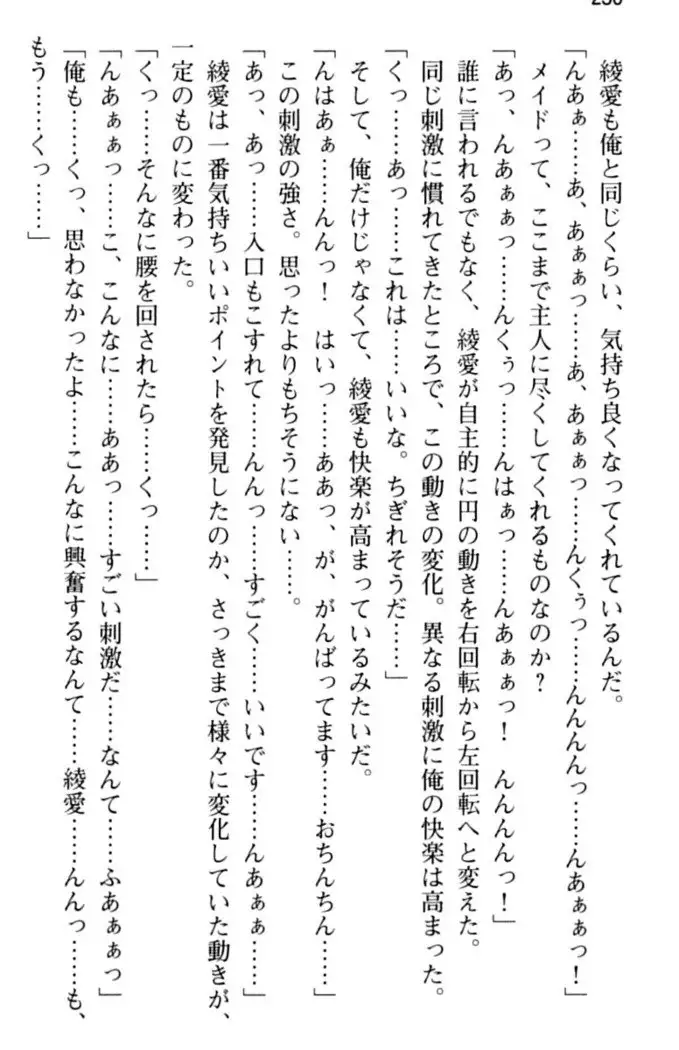 綾愛も俺と同じくらい、気持ち良くなってくれているんだ。
「んあぁ……あ、あぁぁっ……あ、あぁぁっ……んくぅっ……んんんんっ……んあぁぁっ！」
メイドって、ここまで主人に尽くしてくれるものなのか？
「あっ、んあぁぁっ……んくぅっ……んはぁっ……んあぁぁっ！　んんんんっ！」
誰に言われるでもなく、綾愛が自主的に円の動きを右回転から左回転へと変えた。
同じ刺激に慣れてきたところで、この動きの変化。異なる刺激に俺の快楽は高まった。
「くっ……あっ……これは……いいな。ちぎれそうだ……」
そして、俺だけじゃなくて、綾愛も快楽が高まっているみたいだ。
「んはあぁ……んんっ！　はいっ……ああっ、が、がんばってます……おちんちん……」
この刺激の強さ。思ったよりもちそうにない……。
「あっ、あっ……入口もこすれて……んんっ……すごく……いいです……んあぁぁ……」
綾愛は一番気持ちいいポイントを発見したのか、さっきまで様々に変化していた動きが、
一定のものに変わった。
「くっ……そんなに腰を回されたら……くっ……」
「んあぁぁっ……こ、こんなに……ああっ……すごい刺激だ……なんて……ふあぁぁっ」
「俺も……くっ、思わなかったよ……こんなに興奮するなんて……綾愛……んんっ……も、
もう……くっ……」